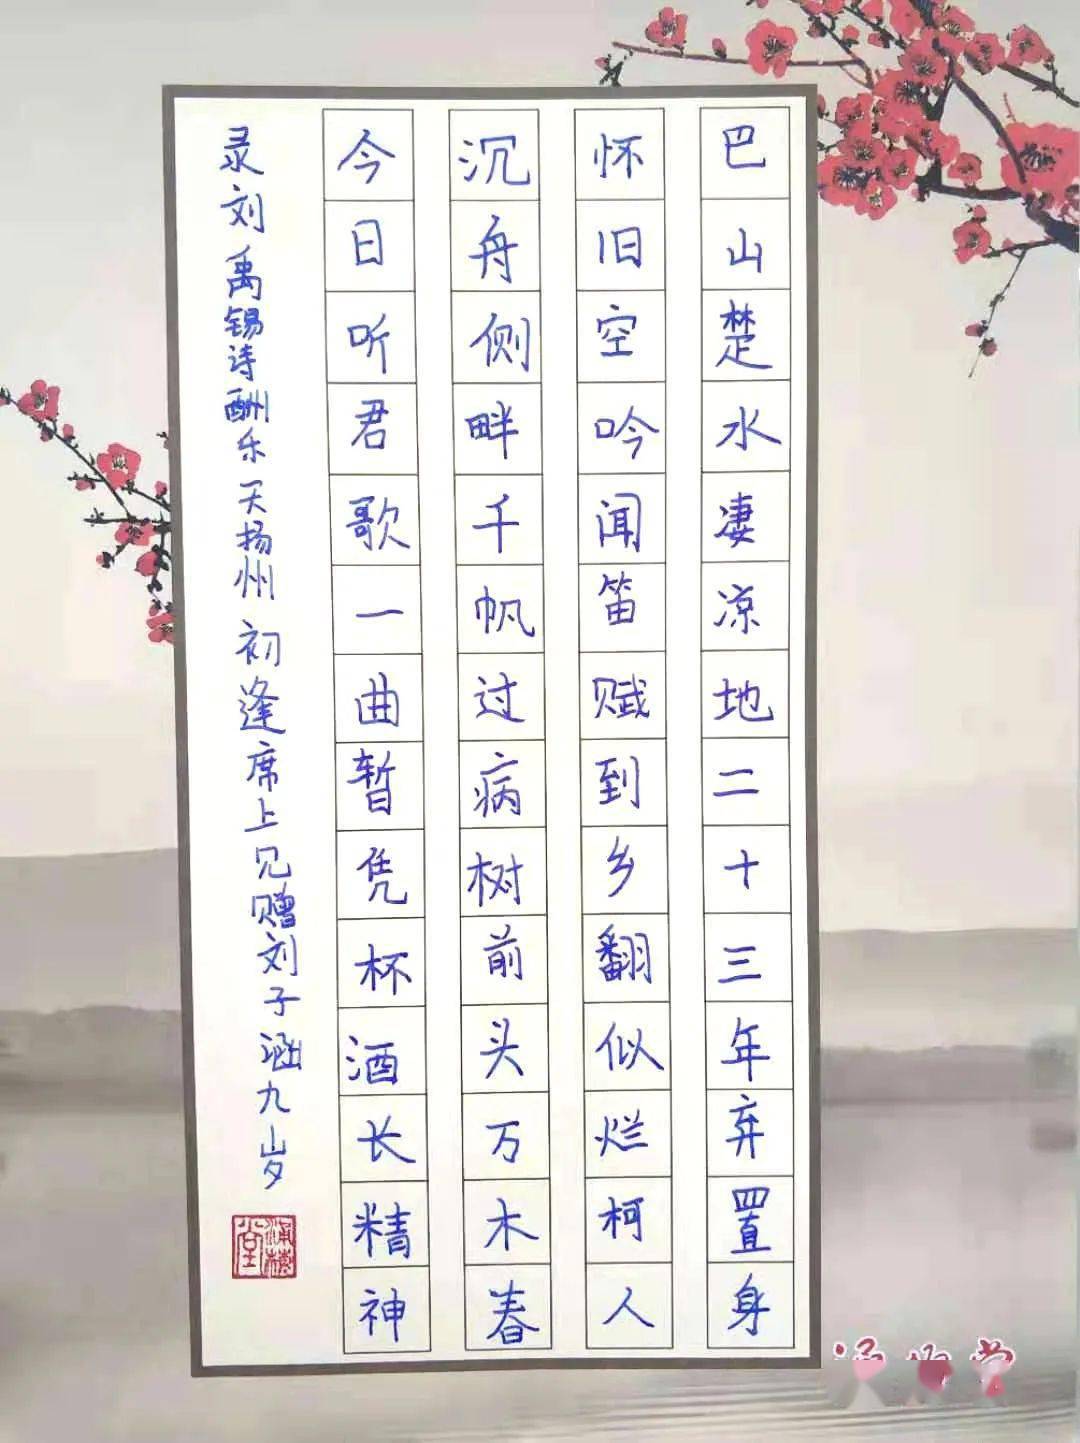 巴山楚水凄凉地二十三年弃置身
怀旧空吟闻笛赋到乡翻似烂柯人
沉舟侧畔千帆过病树前头万木春
今日听君歌一曲暂凭杯酒长精神
录刘禹锡诗酬乐天扬州初逢席上见赠刘子涵九岁